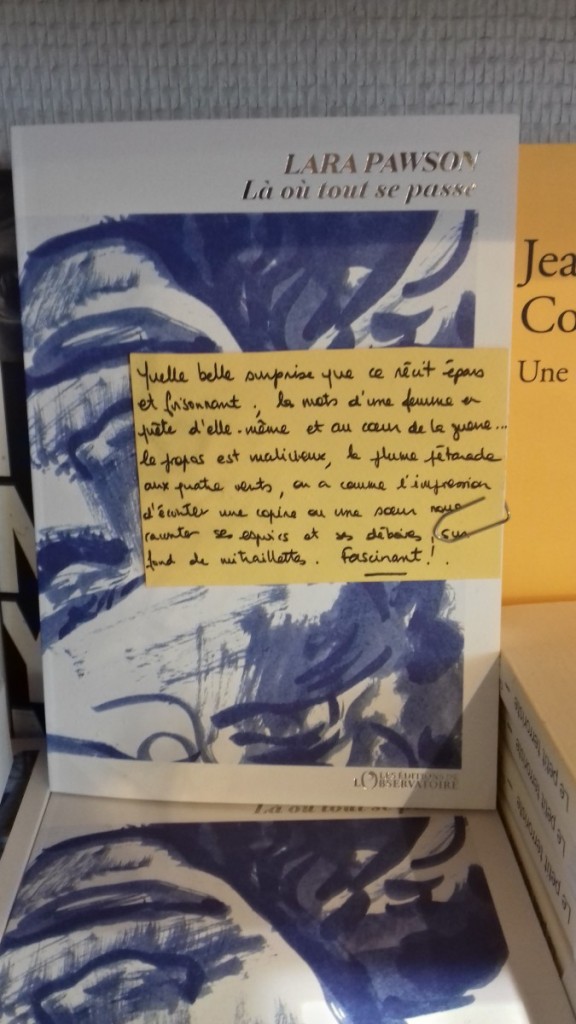 LARA PAWSON
Là où tout se passe
Quelle belle surprise que ce récit épars
et foisonnant, les mots d'une femme en
quête d'elle-même et au cœur de la guerre...
le propos est malicieux, la plume pétarade
aux quatre vents, on a comme l'impression
d'écouter une copine ou une sœur nous
raconter ses espoirs et ses déboires, sur
fond de mitraillettes. Fascinant !
LES ÉDITIONS DE
L'OBSERVATOIRE
Là où tout se p
Jea
Co
Une
Le petit terroriste
Le petit terroriste
Le petit terroriste